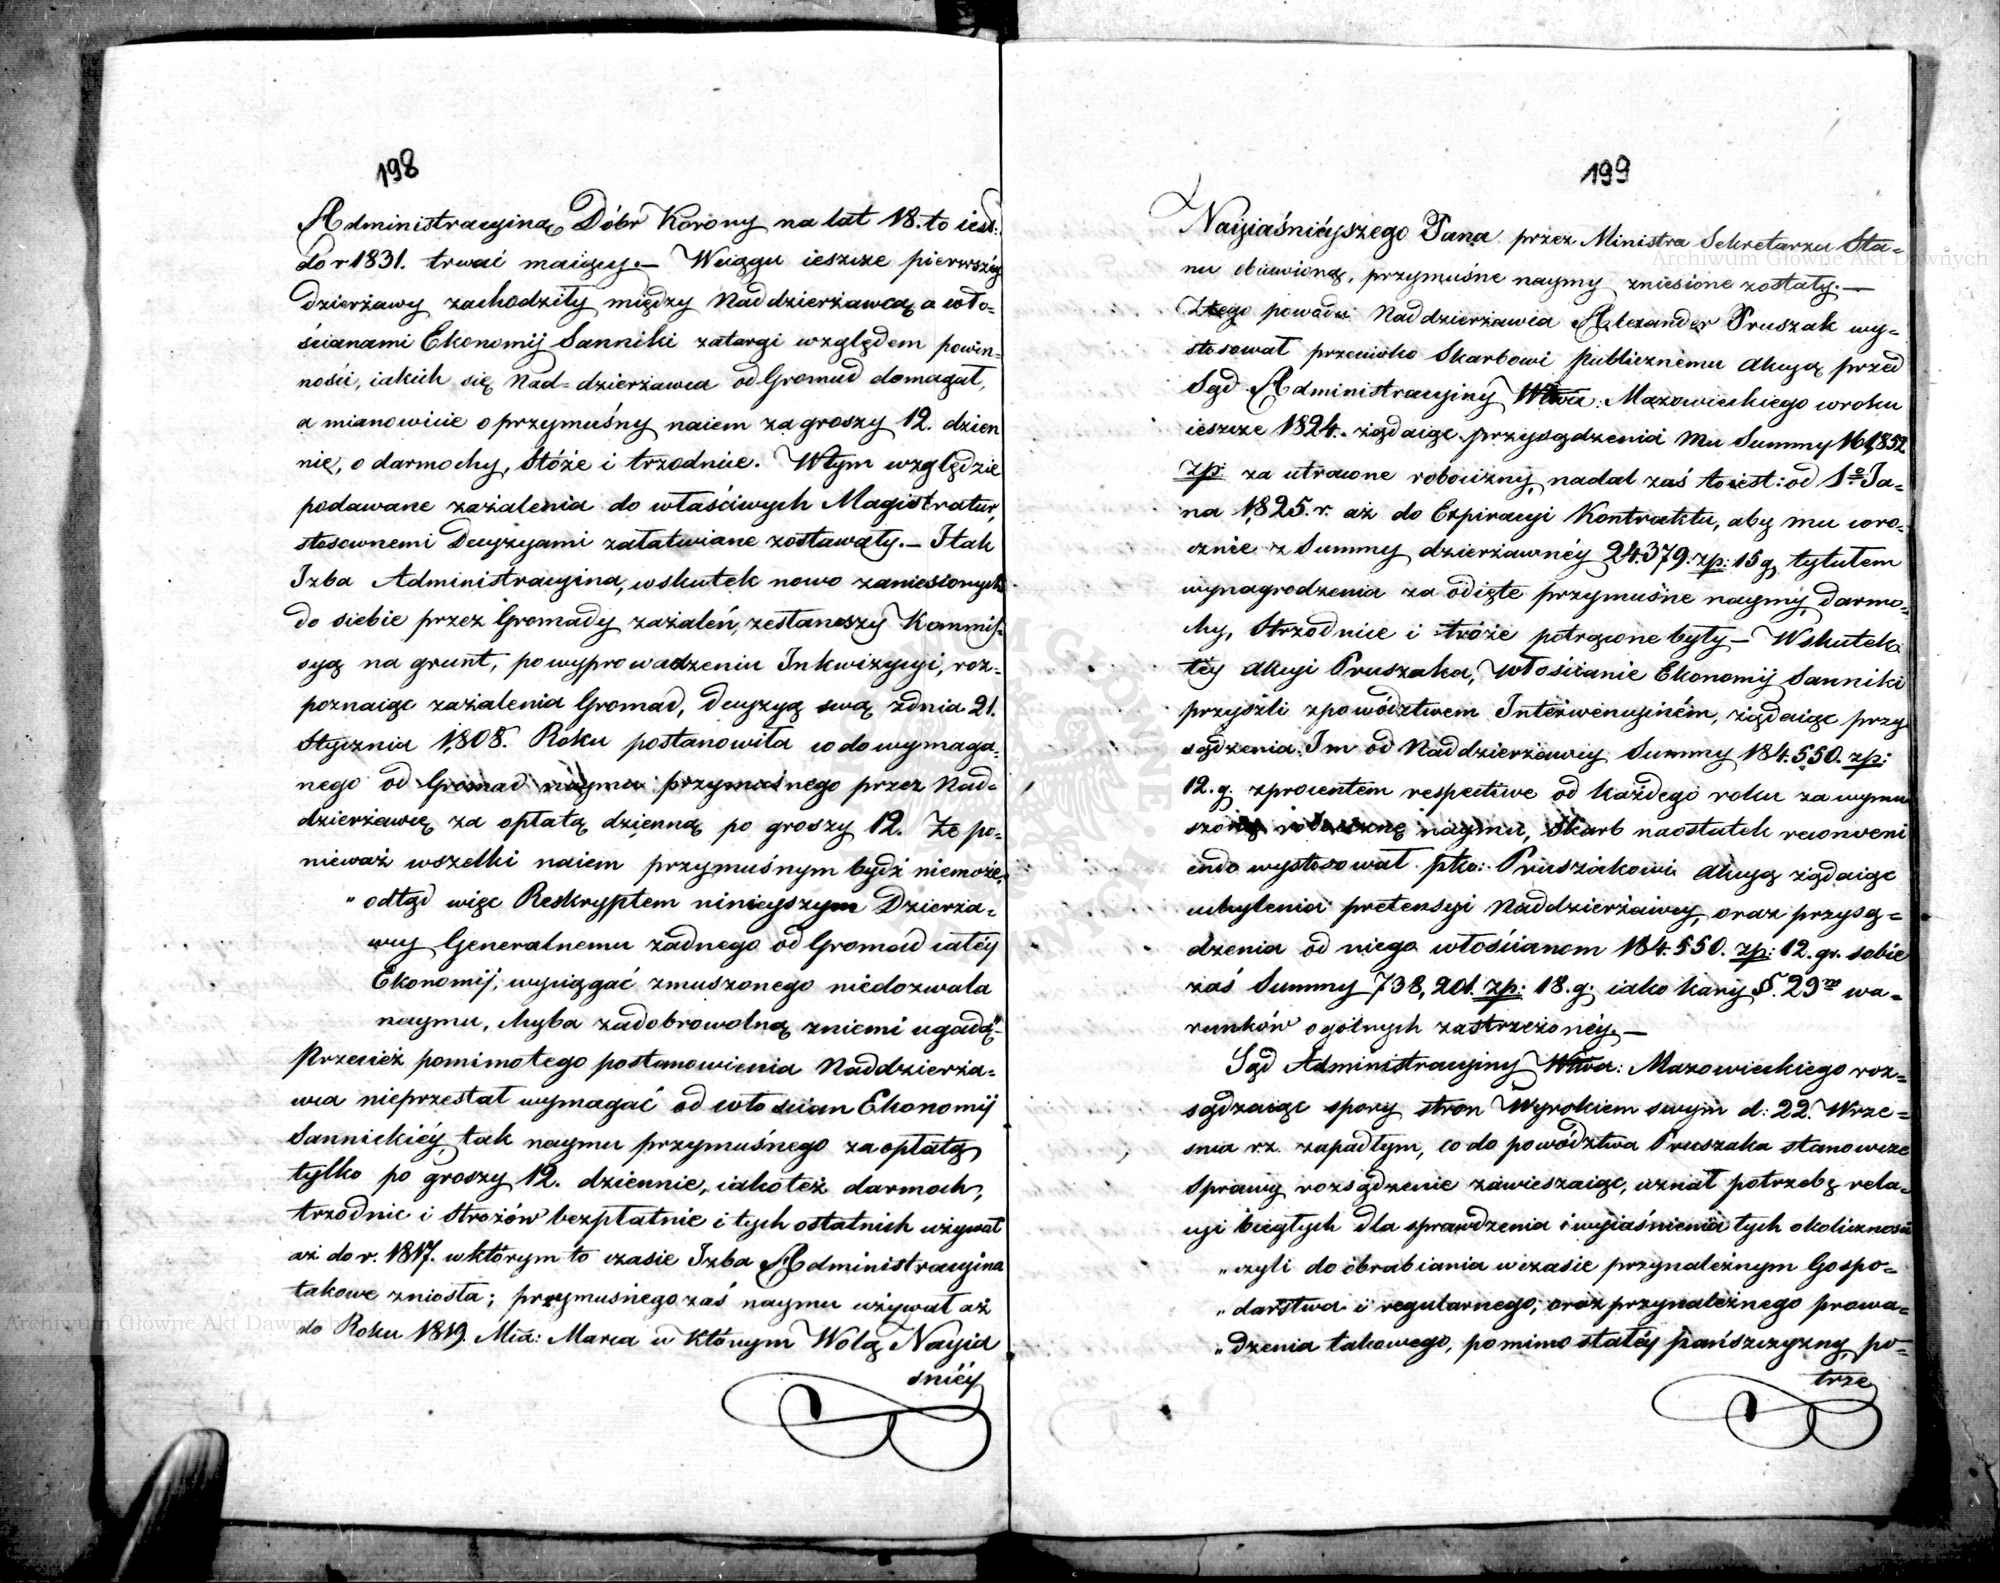 198
Administracyiną Dóbr Korony na lat 18. to iest:
do r 1831. trwać maiący. — Wciągu ieszcze pierwszéy
dzierżawy zachodziły między Naddzierżawcą a wło-
ścianami Ekonomij Sanniki zatargi względem powin-
ności, iakich się Nad-dzierżawca od Gromad domagał,
a mianowicie o przymuśny naiem za groszy 12. dzien
nie, o darmochy, Stóże i trzodnice. Wtym względzie
podawane zażalenia do właściwych Magistratur,
stosownemi Decyzyami załatwiane zostawały. — I tak
Izba Administracyina, wskutek nowo zaniesionych
do siebie przez Gromady zażaleń, zesławszy Kommis-
syą na grunt, po wyprowadzeniu Inkwizycyi, roz-
poznaiąc zażalenia Gromad, decyzyą swą zdnia 21.
Stycznia 1808. Roku postanowiła co do wymaga-
nego od Gromad naymu przymuśnego przez Nad-
dzierżawcę za opłatą dzienną po groszy 12. Że po-
nieważ wszelki naiem przymuśnym bydź niemoże,
„odtąd więc Reskryptem ninieyszym Dzierża-
wcy Generalnemu żadnego od Gromad całéy
Ekonomij, wyciągać zmuszonego niedozwala
naymu, chyba zadobrowolną zniemi ugodą"-
Przecież pomimo tego postanowienia Naddzierża-
wca nieprzestał wymagać od włościan Ekonomij
Sannickiéy, tak naymu przymuśnego za opłatą
tylko po groszy 12. dziennie, iako też darmoch,
trzodnic i Stróżów bezpłatnie i tych ostatnich używał
aż do r. 1817. w którym to czasie Izba Administracyina
takowe zniosła; przymusnego zaś naymu używał aż
do Roku 1819. Mca: Marca w którym Wolą Nayia
śniéy
199
Naiiaśnieyszego Pana przez Ministra Sekretarza Sta-
nu obiawioną, przymuśne naymy zniesione zostały. —
Ztego powodu Naddzierżawca Alexander Pruszak wy-
stosował przeciwko Skarbowi Publicznemu akcyą przed
Sąd Administracyiny Wtwa: Mazowieckiego w roku
ieszcze 1824. żądaiąc przysądzenia mu Summy 161,852
zp: za utracone robocizny, nadal zaś to iest: od 1º. Ja-
na 1825. r. aż do Expiracyi Kontraktu, aby mu coro-
cznie z Summy dzierżawnéy 24.379. zp: 15 g. tytułem
wynagrodzenia za odięte przymuśne naymy, darmo-
chy, Strzodnice i stróże potrącone były — Wskutek
téy akcyi Pruszaka, włościanie Ekonomij Sanniki
przyszli zpowództwem Interwencyiném, żądaiąc przy
sądzenia Im od Naddzierżawcy Summy 184.550. zp:
12. g. zprocentem respective od każdego roku za wymu
szony naymu, Skarb naostatek reconveni
endo wystosował pko: Pruszakowi akcyą żądaiąc
uchylenia pretensyi Naddzierżawcy, oraz przysą-
dzenia od niego włościanom 184.550. zp: 12. gr. sobie
zaś Summy 738,201. zp: 18. g. iako kary §. 29m wa-
runków ogólnych zastrzeżonéy. —
Sąd Administracyiny Wtwa: Mazowieckiego roz-
sądzaiąc spory stron Wyrokiem swym d: 22. Wrze-
snia r.z. zapadłym, co do powództwa Pruszaka stanowcze
Sprawy rozsądzenie zawieszaiąc, uznał potrzebę rela-
cyi biegłych dla sprawdzenia i wyiaśnienia tych okoliczności
„czyli do obrabiania w czasie przynależnym Gospo-
„darstwa i regularnego, oraz przynależnego prowa-
„dzenia takowego, pomimo stałéy pańszczyzny, po-
trze